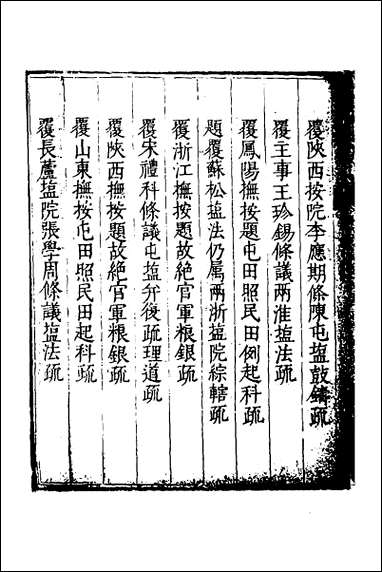 覆陝西按院李應期條陳屯塩鼓鑄疏
覆主事王珍錫條議兩淮塩法疏
覆鳳陽撫按題屯田照民田例起科疏
題覆蘇松塩法仍属兩浙塩院綜轄疏
覆浙江撫按題故絶官軍粮銀疏
覆宋禮科條議屯塩弁後疏理道疏
覆陝西撫按題故絶官軍粮銀疏
覆山東撫按屯田照民田起科疏
覆長蘆塩院張學周條議塩法疏